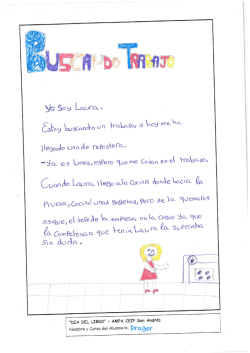 BUSCANDO TRABAJO
Yo Soy Laura.
Estoy buscando un trabajo, y hoy me ha
llegado uno de repostera.
-Ya es lunes, espero que me cojan en el trabajo.
Cuando Laura llego a la cocina donde hacia la
Prueba, Cocinó unas galletas, Pero se la quemaron
asique, el jefe de la empresa no la cogio ya que
la competencia que tenia Laura la superaba
sin duda.
"DIA DEL LIBRO" - AMPA CEIP San Andrés
Nombre y Curso del Alumno/a: